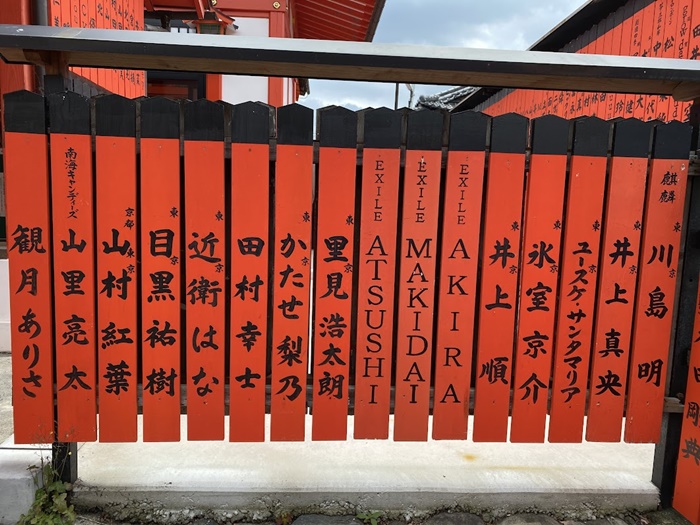 麒麟 川島明
東京 井上真央
ユースケ・サンタマリア
東京 氷室京介
東京 井上順
EXILE AKIRA
EXILE MAKIDAI
EXILE ATSUSHI
東京 里見浩太朗
かたせ梨乃
田村幸士
東京 近衛はな
東京 目黒祐樹
京都 東京 山村紅葉
南海キャンディーズ 山里亮太
観月ありさ